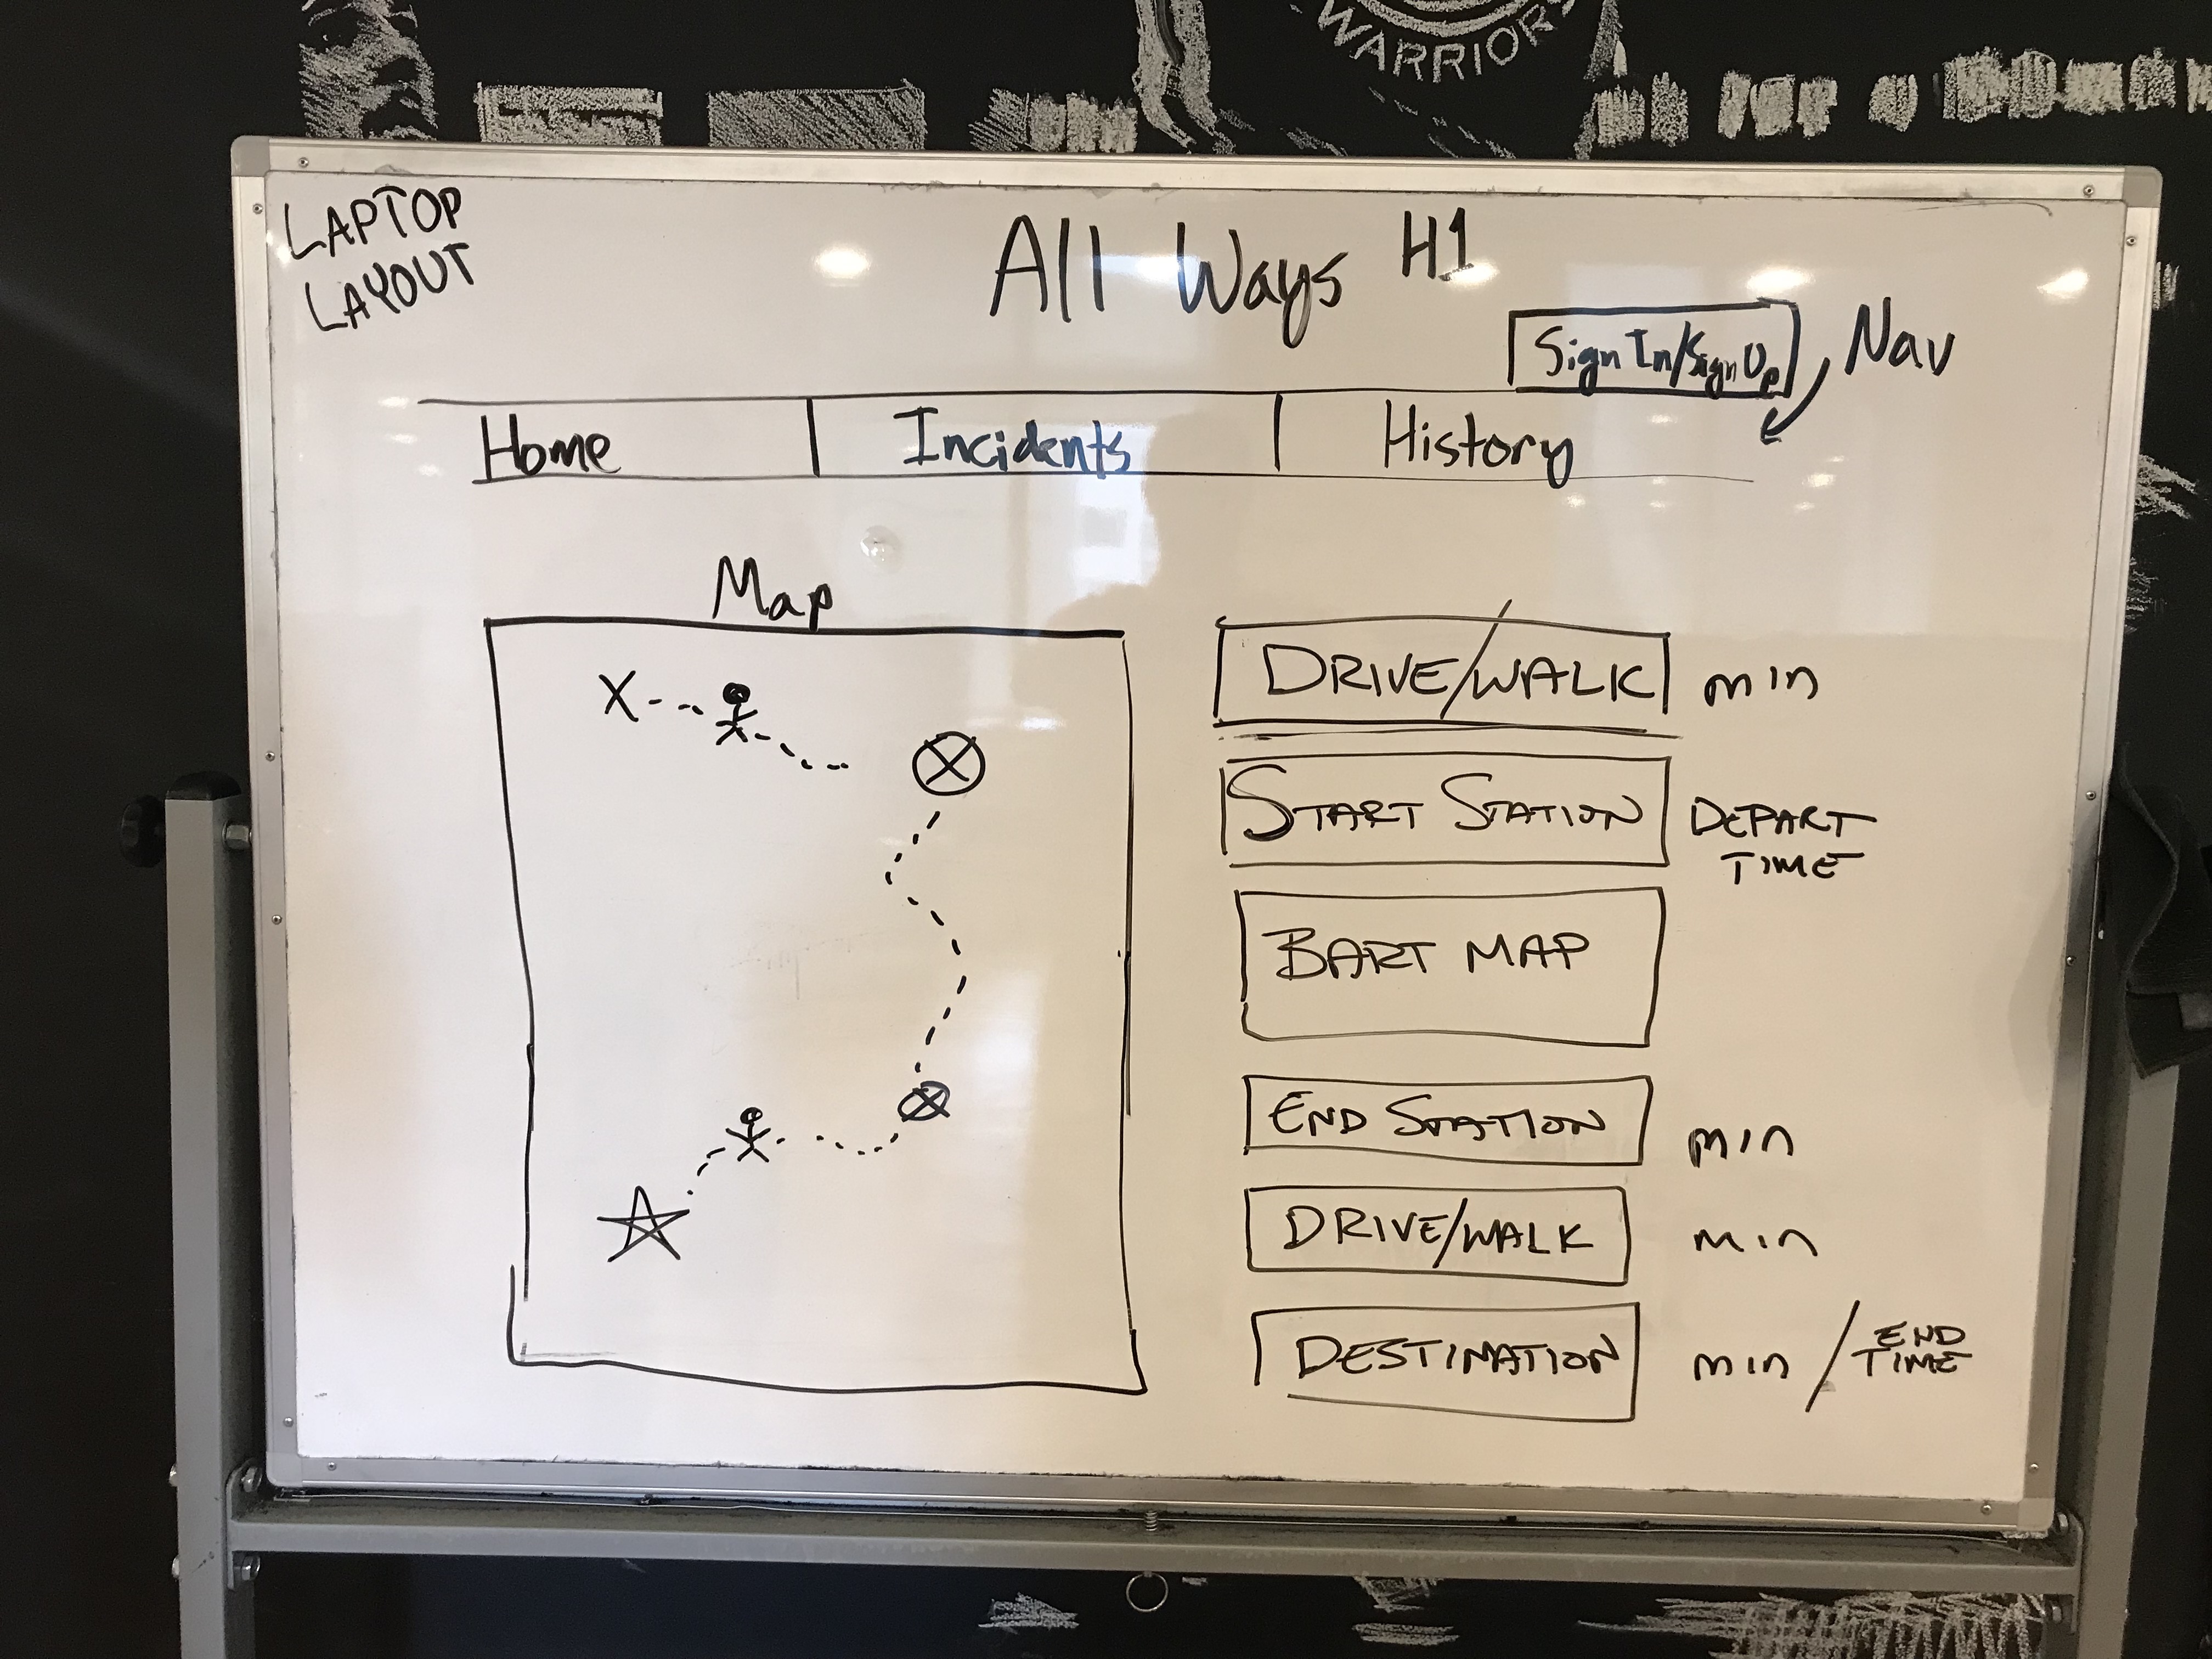 WARRIORS
LAPTOP
LAYOUT
All Ways H1
Sign In/Sign Up
Nav
Home
Incidents
History
Map
DRIVE/WALK min
START STATION DEPART
TIME
BART MAP
END STATION min
DRIVE/WALK min
DESTINATION min / END
TIME